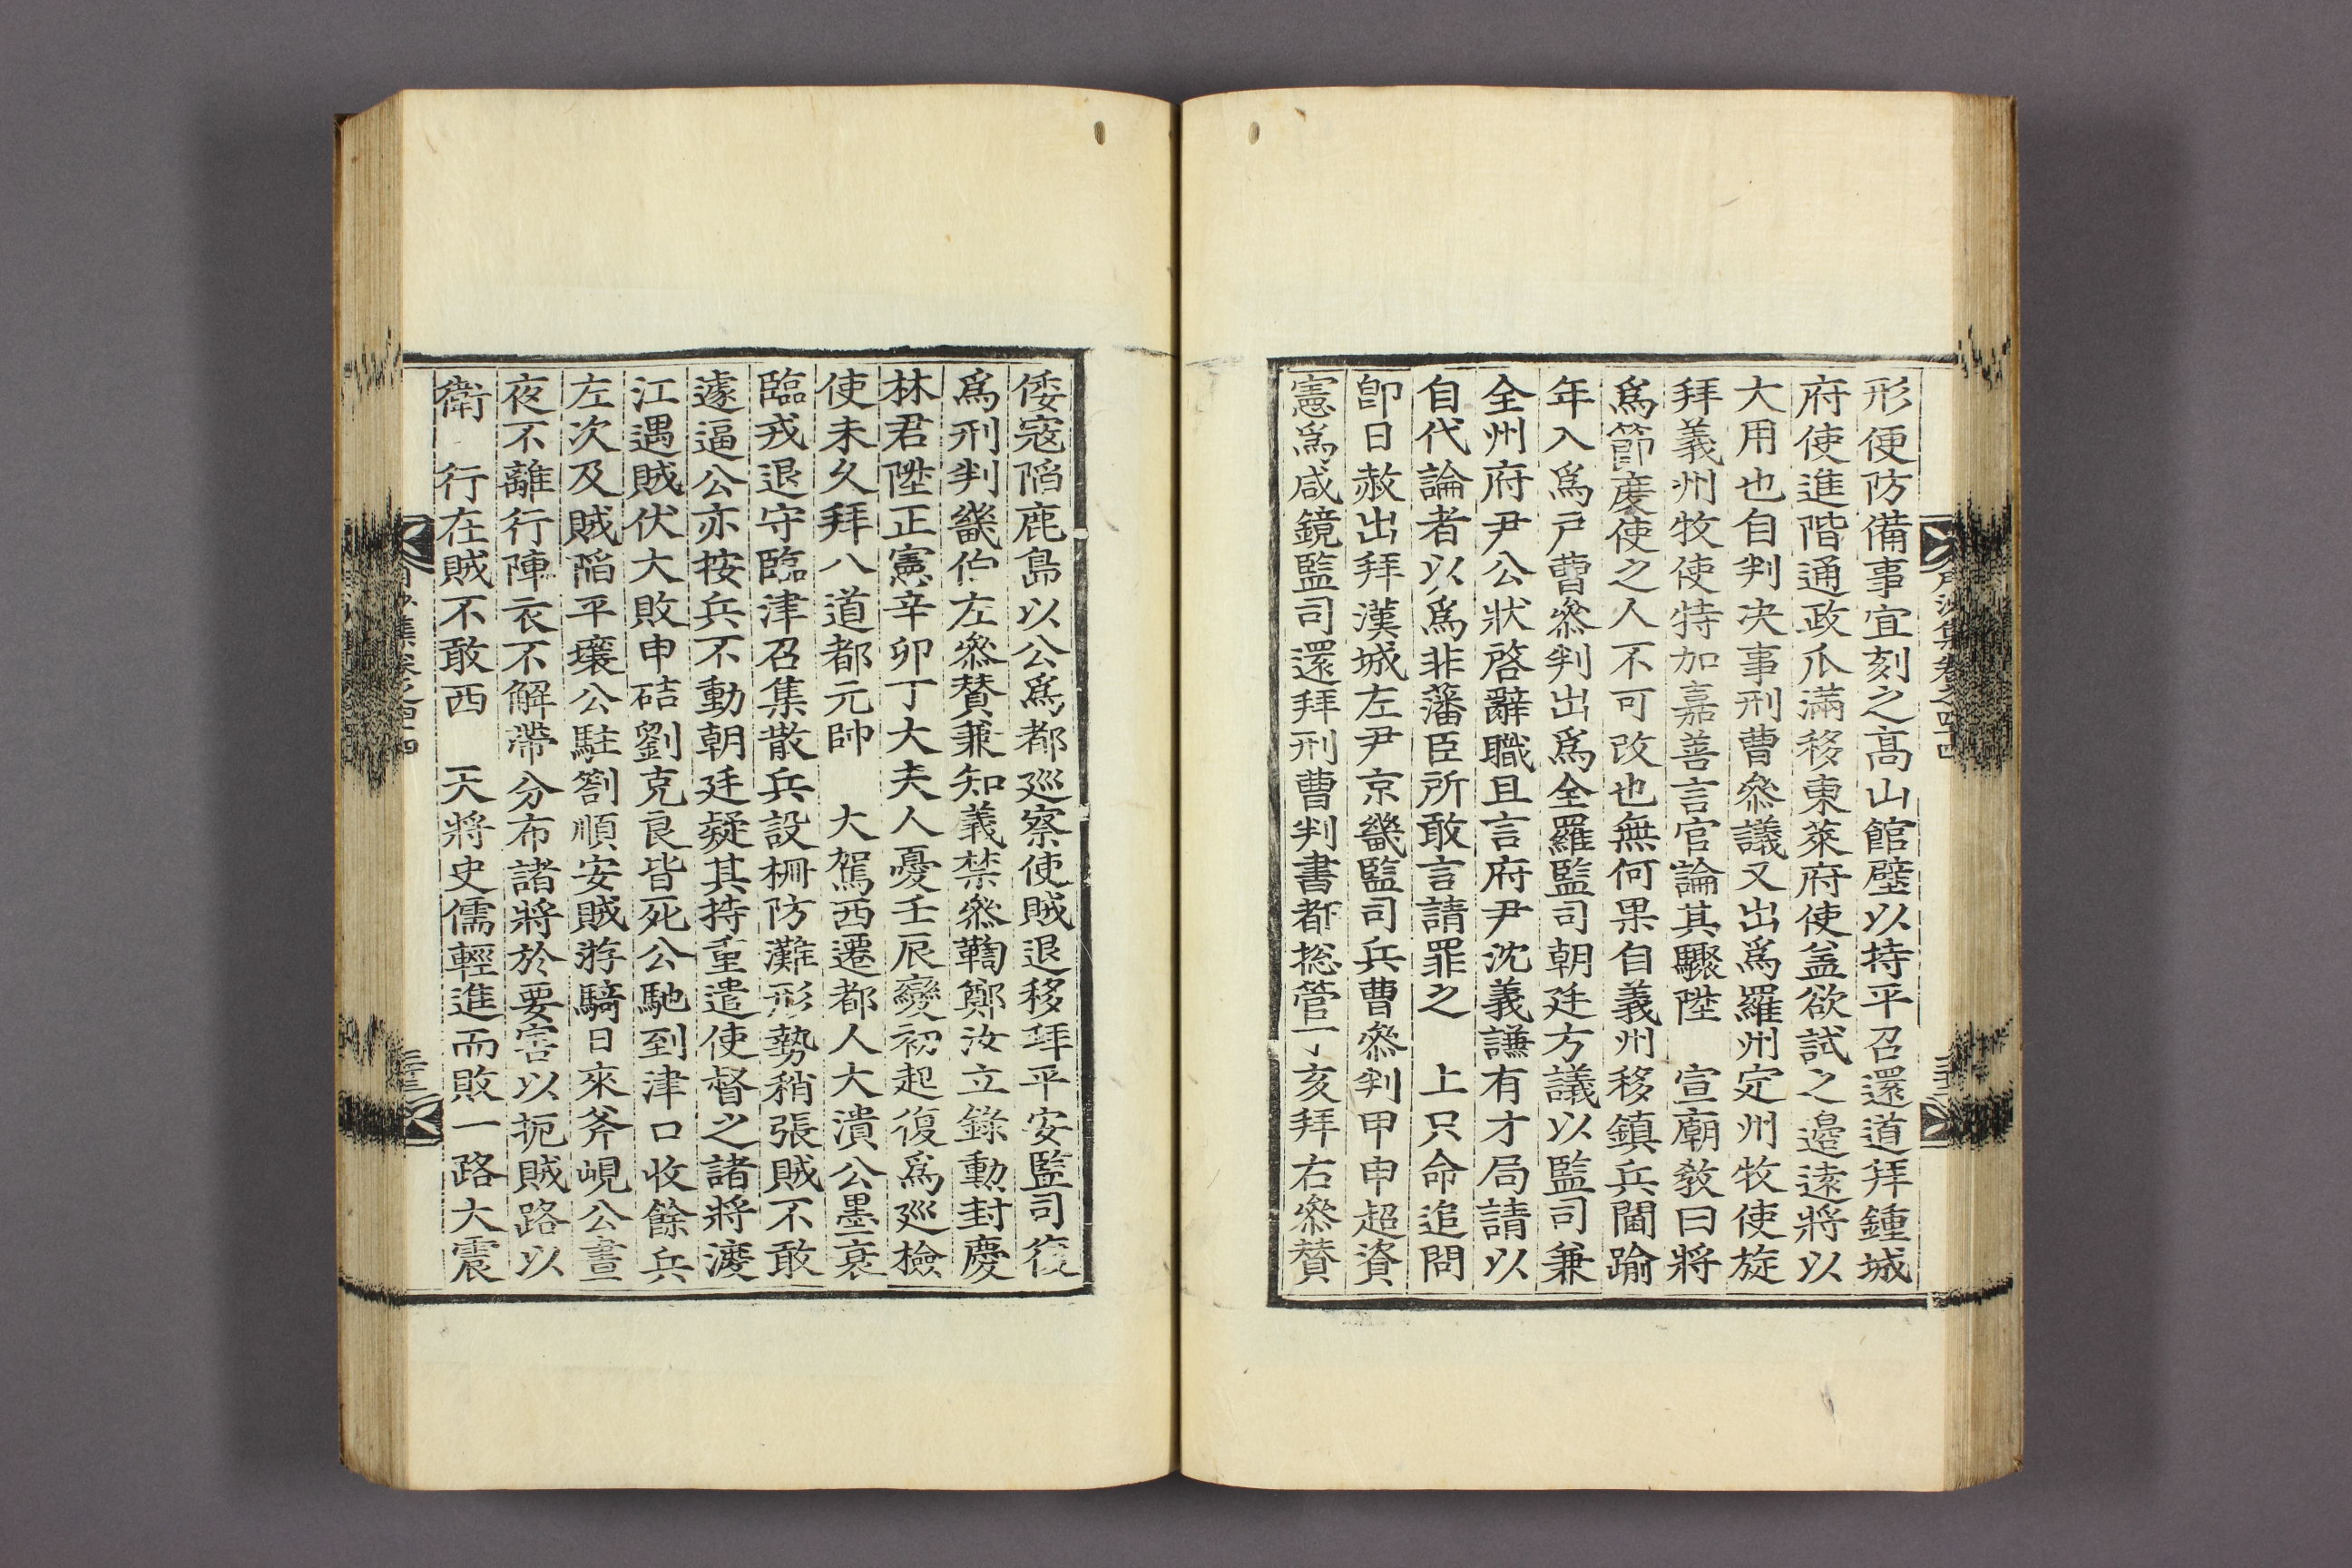 形便防備事宜刻之高山館壁以持平召還道拜鍾城
府使進階通政爪滿移東萊府使盖欲試之邉遠將以
大用也自判决事刑曹叅議又出爲羅州定州牧使旋
拜義州牧使特加嘉善言官論其驟陞 宣廟敎曰將
爲節度使之人不可改也無何果自義州移鎮兵閫踰
年入爲戶曹叅判出爲全羅監司朝廷方議以監司兼
全州府尹公狀啓辭職且言府尹沈義謙有才局請以
自代論者以爲非藩臣所敢言請罪之 上只命追問
卽日赦出拜漢城左尹京畿監司兵曹叅判甲申超資
憲爲咸鏡監司還拜刑曹判書都捴管丁亥拜右叅賛
倭寇陷鹿島以公爲都廵察使賊退移拜平安監司復
爲刑判畿伯左叅賛兼知義禁叅鞫鄭汝立錄勳封慶
林君陞正憲辛卯丁大夫人憂壬辰變初起復爲廵檢
使未久拜八道都元帥 大駕西遷都人大潰公墨衰
臨戎退守臨津召集散兵設柵防灘形勢稍張賊不敢
遽逼公亦按兵不動朝廷疑其持重遣使督之諸將渡
江遇賊伏大敗申硈劉克良皆死公馳到津口收餘兵
左次及賊陷平壤公駐劄順安賊游騎日來斧峴公晝
夜不離行陣衣不解帶分布諸將於要害以扼賊路以
衛 行在賊不敢西 天將史儒輕進而敗一路大震